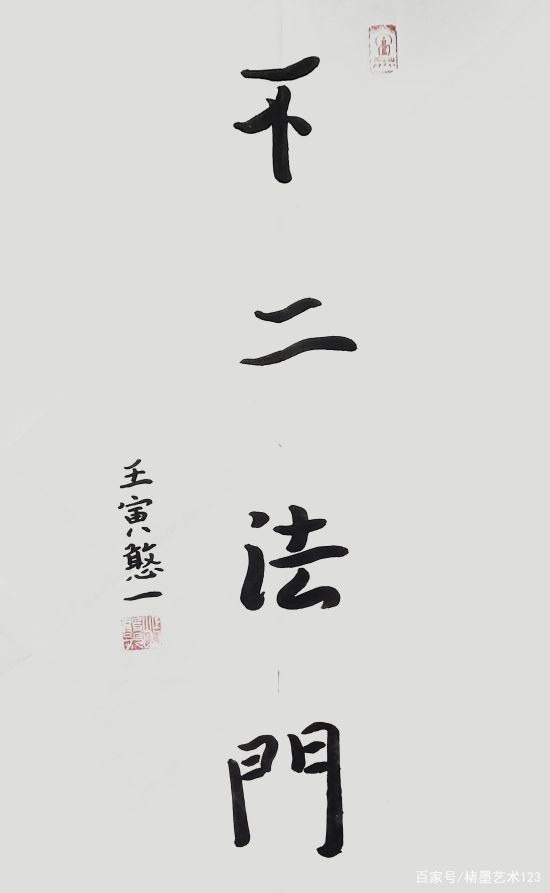 不二法門
壬寅憨一
百家号/楮墨艺术123